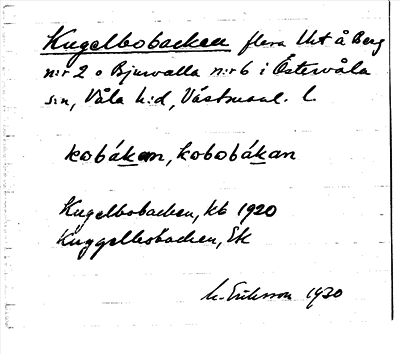 Kugelbobacken flera lht å Berg
n:r 2 o Bjurvalla n:r 6 i Östervåla
s:n, Våla h:d, Västmanl. l.
kobákan, kobobákan
Kugelbobacken, kb 1920
Kuggelbobacken, EK
M. Eriksson 1930